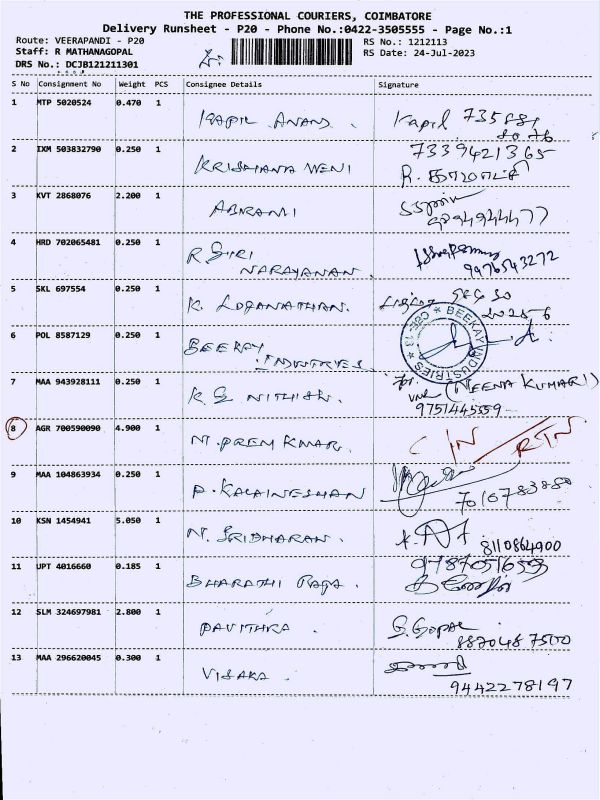 THE PROFESSIONAL COURIERS, COIMBATORE
Delivery Runsheet - P20 - Phone No.:0422-3505555 - Page No.:1
Route: VEERAPANDI - P20
RS No.: 1212113
Staff: R MATHANAGOPAL
RS Date: 24-Jul-2023
DRS No.: DCJB121211301
S No Consignment No Weight PCS Consignee Details Signature
1 MTP 5020524 0.470 1 KAPIL ANAND. Kapil
2 IXM 503832790 0.250 1 KRISHANA VENI 7339421365
R. காமாட்சி
3 KVT 2868076 2.200 1 ABIRAMI
4 HRD 702065481 0.250 1 R SIRI
NARAYANAN. 9976543272
5 SKL 697554 0.250 1 K. LOGANATHAN.
6 POL 8587129 0.250 1 BEEKAY
INDUSTRIES. BEEKAY INDUSTRIES * CBE-13 *
7 MAA 943928111 0.250 1 K S NITHISH. for (NEENA KUMARI)
9751445559
8 AGR 700590090 4.900 1 M. PREM KMAR. C/N / RTN
9 MAA 104863934 0.250 1 P. KALAINESHAN
7016783880
10 KSN 1454941 5.050 1 N. SRIDHARAN.
8110864900
11 UPT 4016660 0.185 1 BHARATHI RAJA.
12 SLM 324697981 2.800 1 PAVITHRA. G. Gopal
13 MAA 296620045 0.300 1 VISAKA.
9442278197